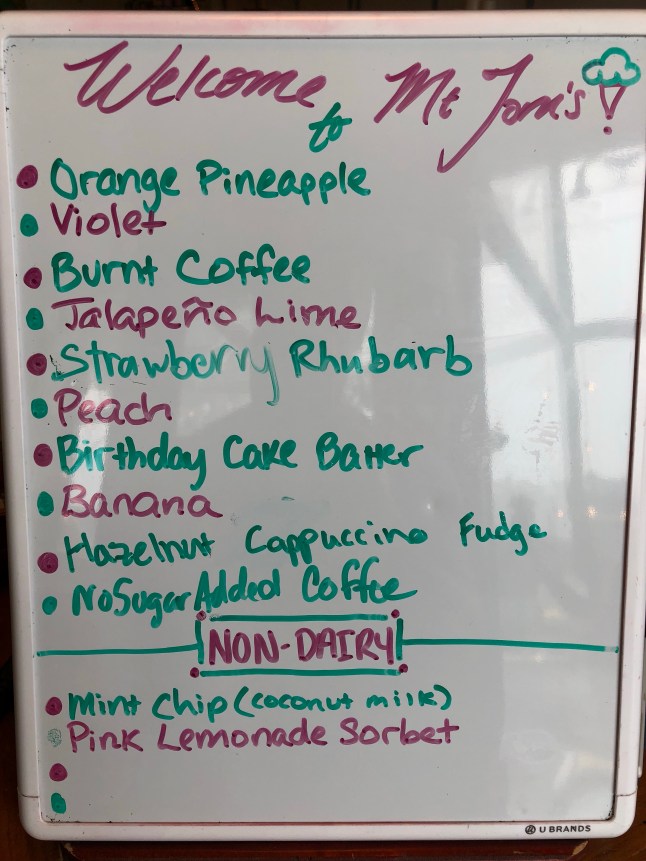 Welcome to Mt Tom's!
Orange Pineapple
Violet
Burnt Coffee
Jalapeño Lime
Strawberry Rhubarb
Peach
Birthday Cake Batter
Banana
Hazelnut Cappuccino Fudge
No Sugar Added Coffee
NON-DAIRY
Mint Chip (coconut milk)
Pink Lemonade Sorbet
U BRANDS